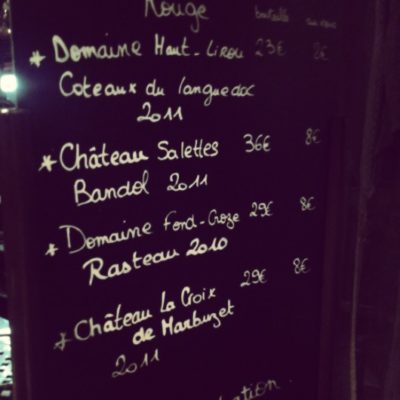 Rouge bouteille
* Domaine Haut-Lirou 23€ 8€
Coteaux du languedoc
2011
* Château Salettes 36€ 8€
Bandol 2011
* Domaine Fond-Croze 29€ 8€
Rasteau 2010
* Château La Croix 29€ 8€
de Marbuzet
2011